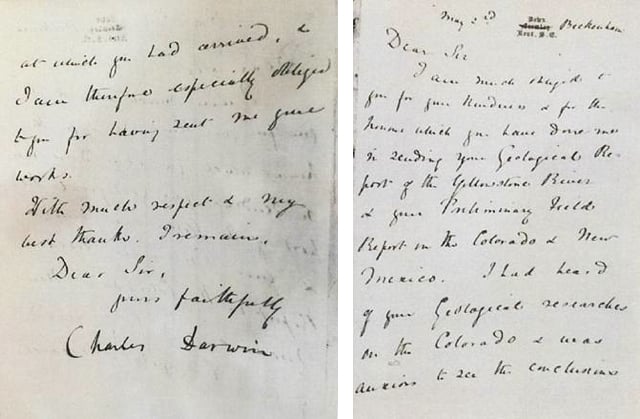 May 2d Down, Beckenham
Kent. S.E.
Dear Sir
I am much obliged to
you for your kindness & for the
honour which you have done me
in sending your Geological Re-
port of the Yellowstone River
& your Preliminary Field
Report on the Colorado & New
Mexico. I had heard
of your Geological researches
on the Colorado & was
anxious to see the conclusions
at which you had arrived, &
I am therefore especially obliged
to you for having sent me your
works.
With much respect & my
best thanks. I remain,
Dear Sir,
yours faithfully
Charles Darwin